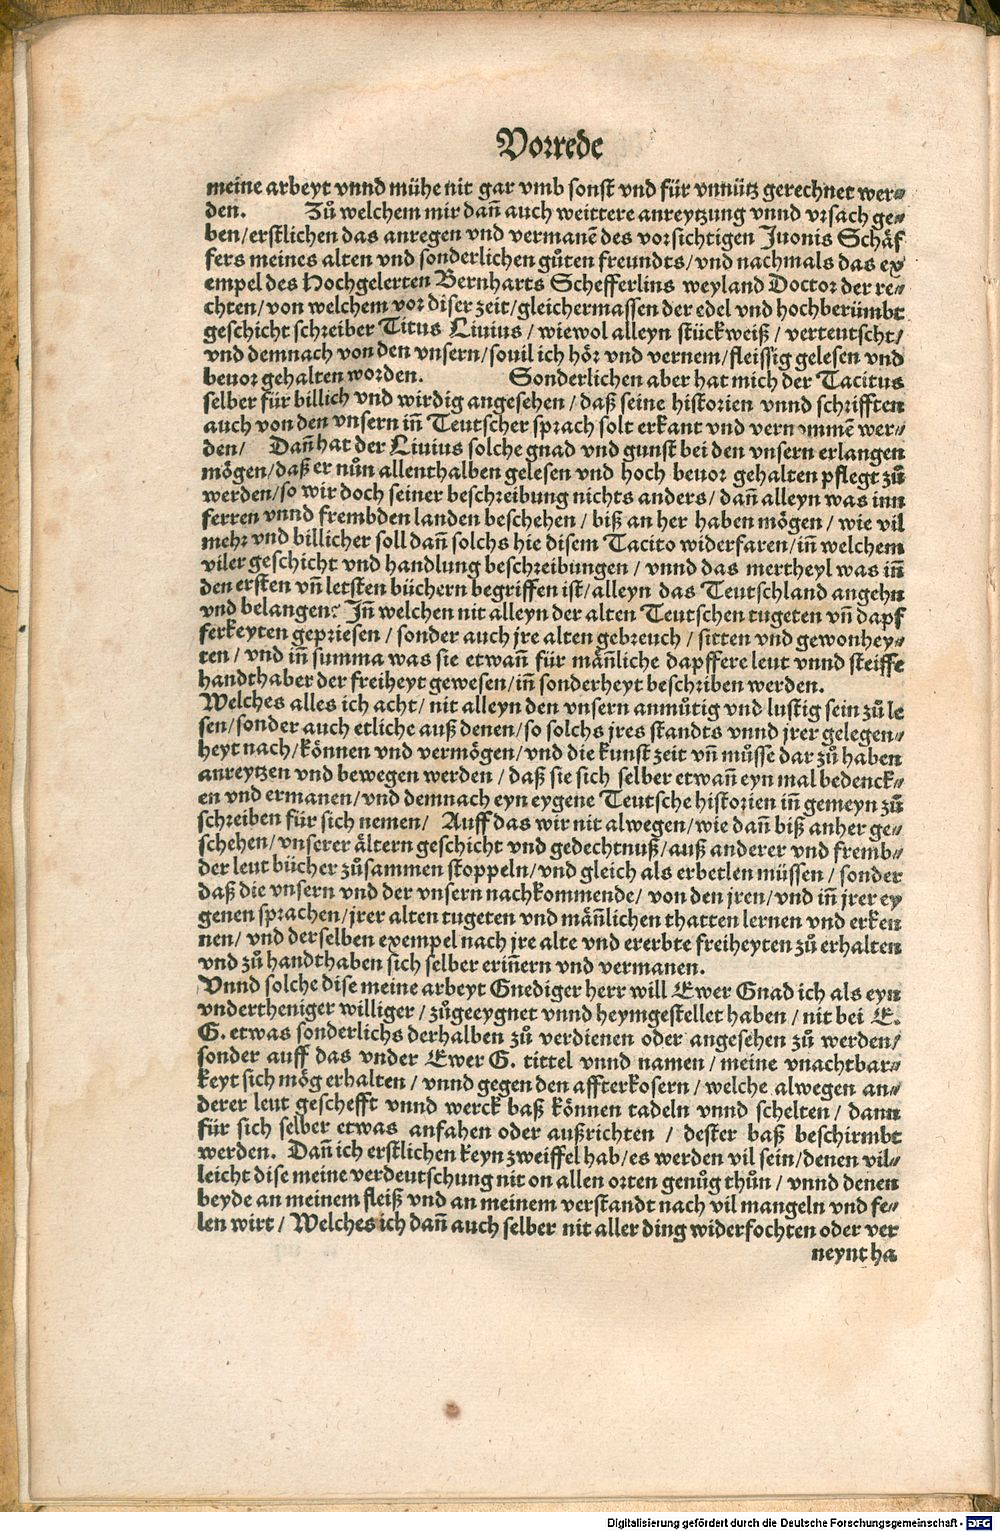 Vorrede
meine arbeyt vnnd mühe nit gar vmb sonst vnd für vnnütz gerechnet wer⸗
den. Zů welchem mir dañ auch weittere anreytzung vnnd vrsach ge⸗
ben/erstlichen das anregen vnd vermanẽ des vorsichtigen Juonis Schäf
fers meines alten vnd sonderlichen gůten freundts/vnd nachmals das ex
empel des Hochgelerten Bernharts Schefferlins weyland Doctor der re⸗
chten/von welchem vor diser zeit/gleichermassen der edel vnd hochberümbt
geschicht schreiber Titus Liuius / wiewol alleyn stückweiß / verteutscht/
vnd demnach von den vnsern/souil ich hör vnd vernem/fleissig gelesen vnd
beuor gehalten worden. Sonderlichen aber hat mich der Tacitus
selber für billich vnd wirdig angesehen / daß seine historien vnnd schrifften
auch von den vnsern iñ Teutscher sprach solt erkant vnd vernommẽ wer⸗
den/ Dañ hat der Liuius solche gnad vnd gunst bei den vnsern erlangen
mögen/daß er nůn allenthalben gelesen vnd hoch beuor gehalten pflegt zů
werden/so wir doch seiner beschreibung nichts anders/ dañ alleyn was inn
ferren vnnd frembden landen beschehen / biß an her haben mögen / wie vil
mehr vnd billicher soll dañ solchs hie disem Tacito widerfaren/iñ welchem
viler geschicht vnd handlung beschreibungen / vnnd das mertheyl was iñ
den ersten vñ letsten büchern begriffen ist/alleyn das Teutschland angehn
vnd belangen: Jñ welchen nit alleyn der alten Teutschen tugeten vñ dapf
ferkeyten gepriesen / sonder auch jre alten gebreuch / sitten vnd gewonhey⸗
ten / vnd iñ summa was sie etwañ für mäñliche dapffere leut vnnd steiffe
handthaber der freiheyt gewesen/iñ sonderheyt beschriben werden.
Welches alles ich acht/ nit alleyn den vnsern anmůtig vnd lustig sein zů le
sen/sonder auch etliche auß denen/so solchs jres standts vnnd jrer gelegen⸗
heyt nach/können vnd vermögen/vnd die kunst zeit vñ můsse dar zů haben
anreytzen vnd bewegen werden / daß sie sich selber etwañ eyn mal bedenck⸗
en vnd ermanen/vnd demnach eyn eygene Teutsche historien iñ gemeyn zů
schreiben für sich nemen/ Auff das wir nit alwegen/wie dañ biß anher ge⸗
schehen/vnserer ältern geschicht vnd gedechtnuß/auß anderer vnd fremb⸗
der leut bücher zůsammen stoppeln/vnd gleich als erbetlen müssen / sonder
daß die vnsern vnd der vnsern nachkommende/ von den jren/vnd iñ jrer ey
genen sprachen/jrer alten tugeten vnd mäñlichen thatten lernen vnd erken
nen/ vnd derselben exempel nach jre alte vnd ererbte freiheyten zů erhalten
vnd zů handthaben sich selber eriñern vnd vermanen.
Vnnd solche dise meine arbeyt Gnediger herr will Ewer Gnad ich als eyn
vndertheniger williger / zůgeeygnet vnnd heymgestellet haben / nit bei E.
G. etwas sonderlichs derhalben zů verdienen oder angesehen zů werden/
sonder auff das vnder Ewer G. tittel vnnd namen / meine vnachtbar⸗
keyt sich mög erhalten / vnnd gegen den affterkosern / welche alwegen an⸗
derer leut geschefft vnnd werck baß können tadeln vnnd schelten / dann
für sich selber etwas anfahen oder außrichten / dester baß beschirmbt
werden. Dañ ich erstlichen keyn zweiffel hab/es werden vil sein/denen vil⸗
leicht dise meine verdeutschung nit on allen orten genůg thůn / vnnd denen
beyde an meinem fleiß vnd an meinem verstandt nach vil mangeln vnd fe⸗
len wirt / Welches ich dañ auch selber nit aller ding widerfochten oder ver
neynt ha
Digitalisierung gefördert durch die Deutsche Forschungsgemeinschaft - DFG